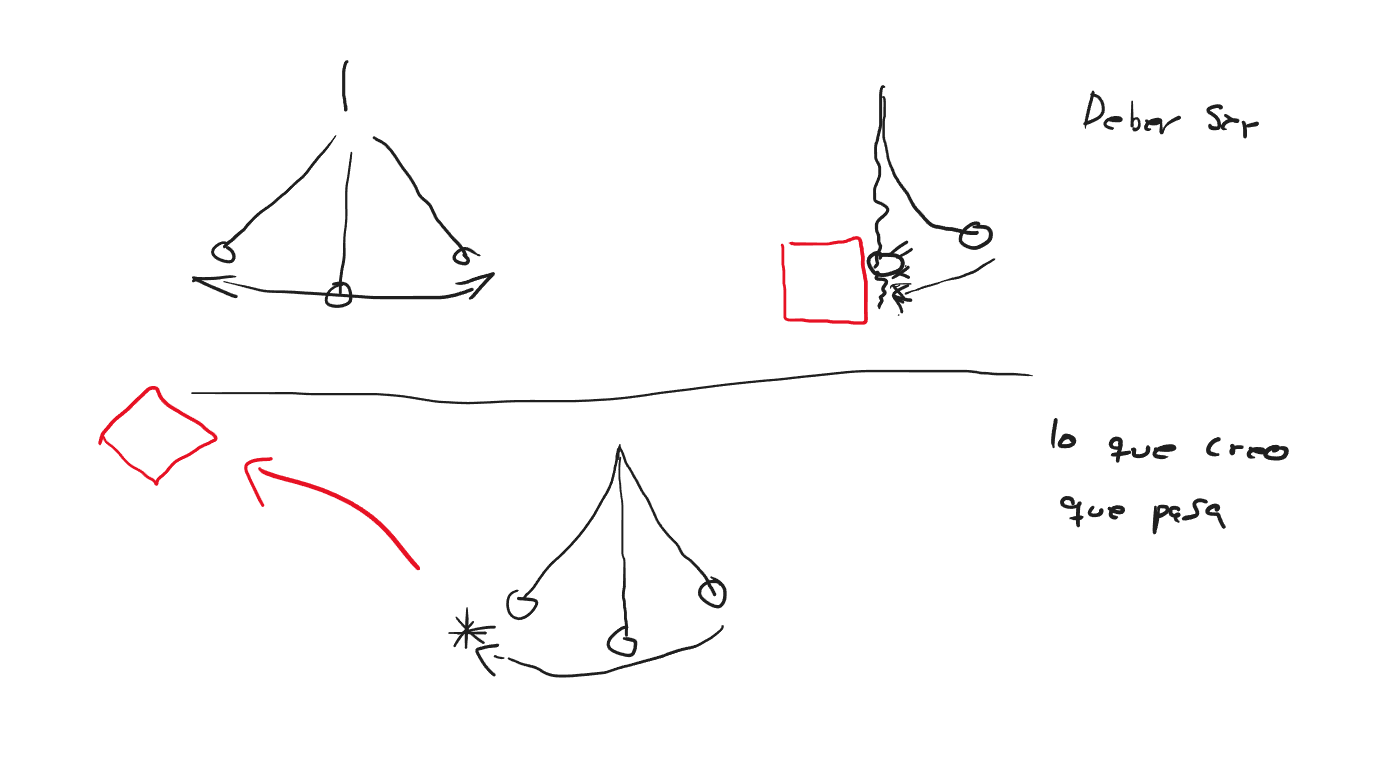 Deber Ser
lo que creo
que pasa